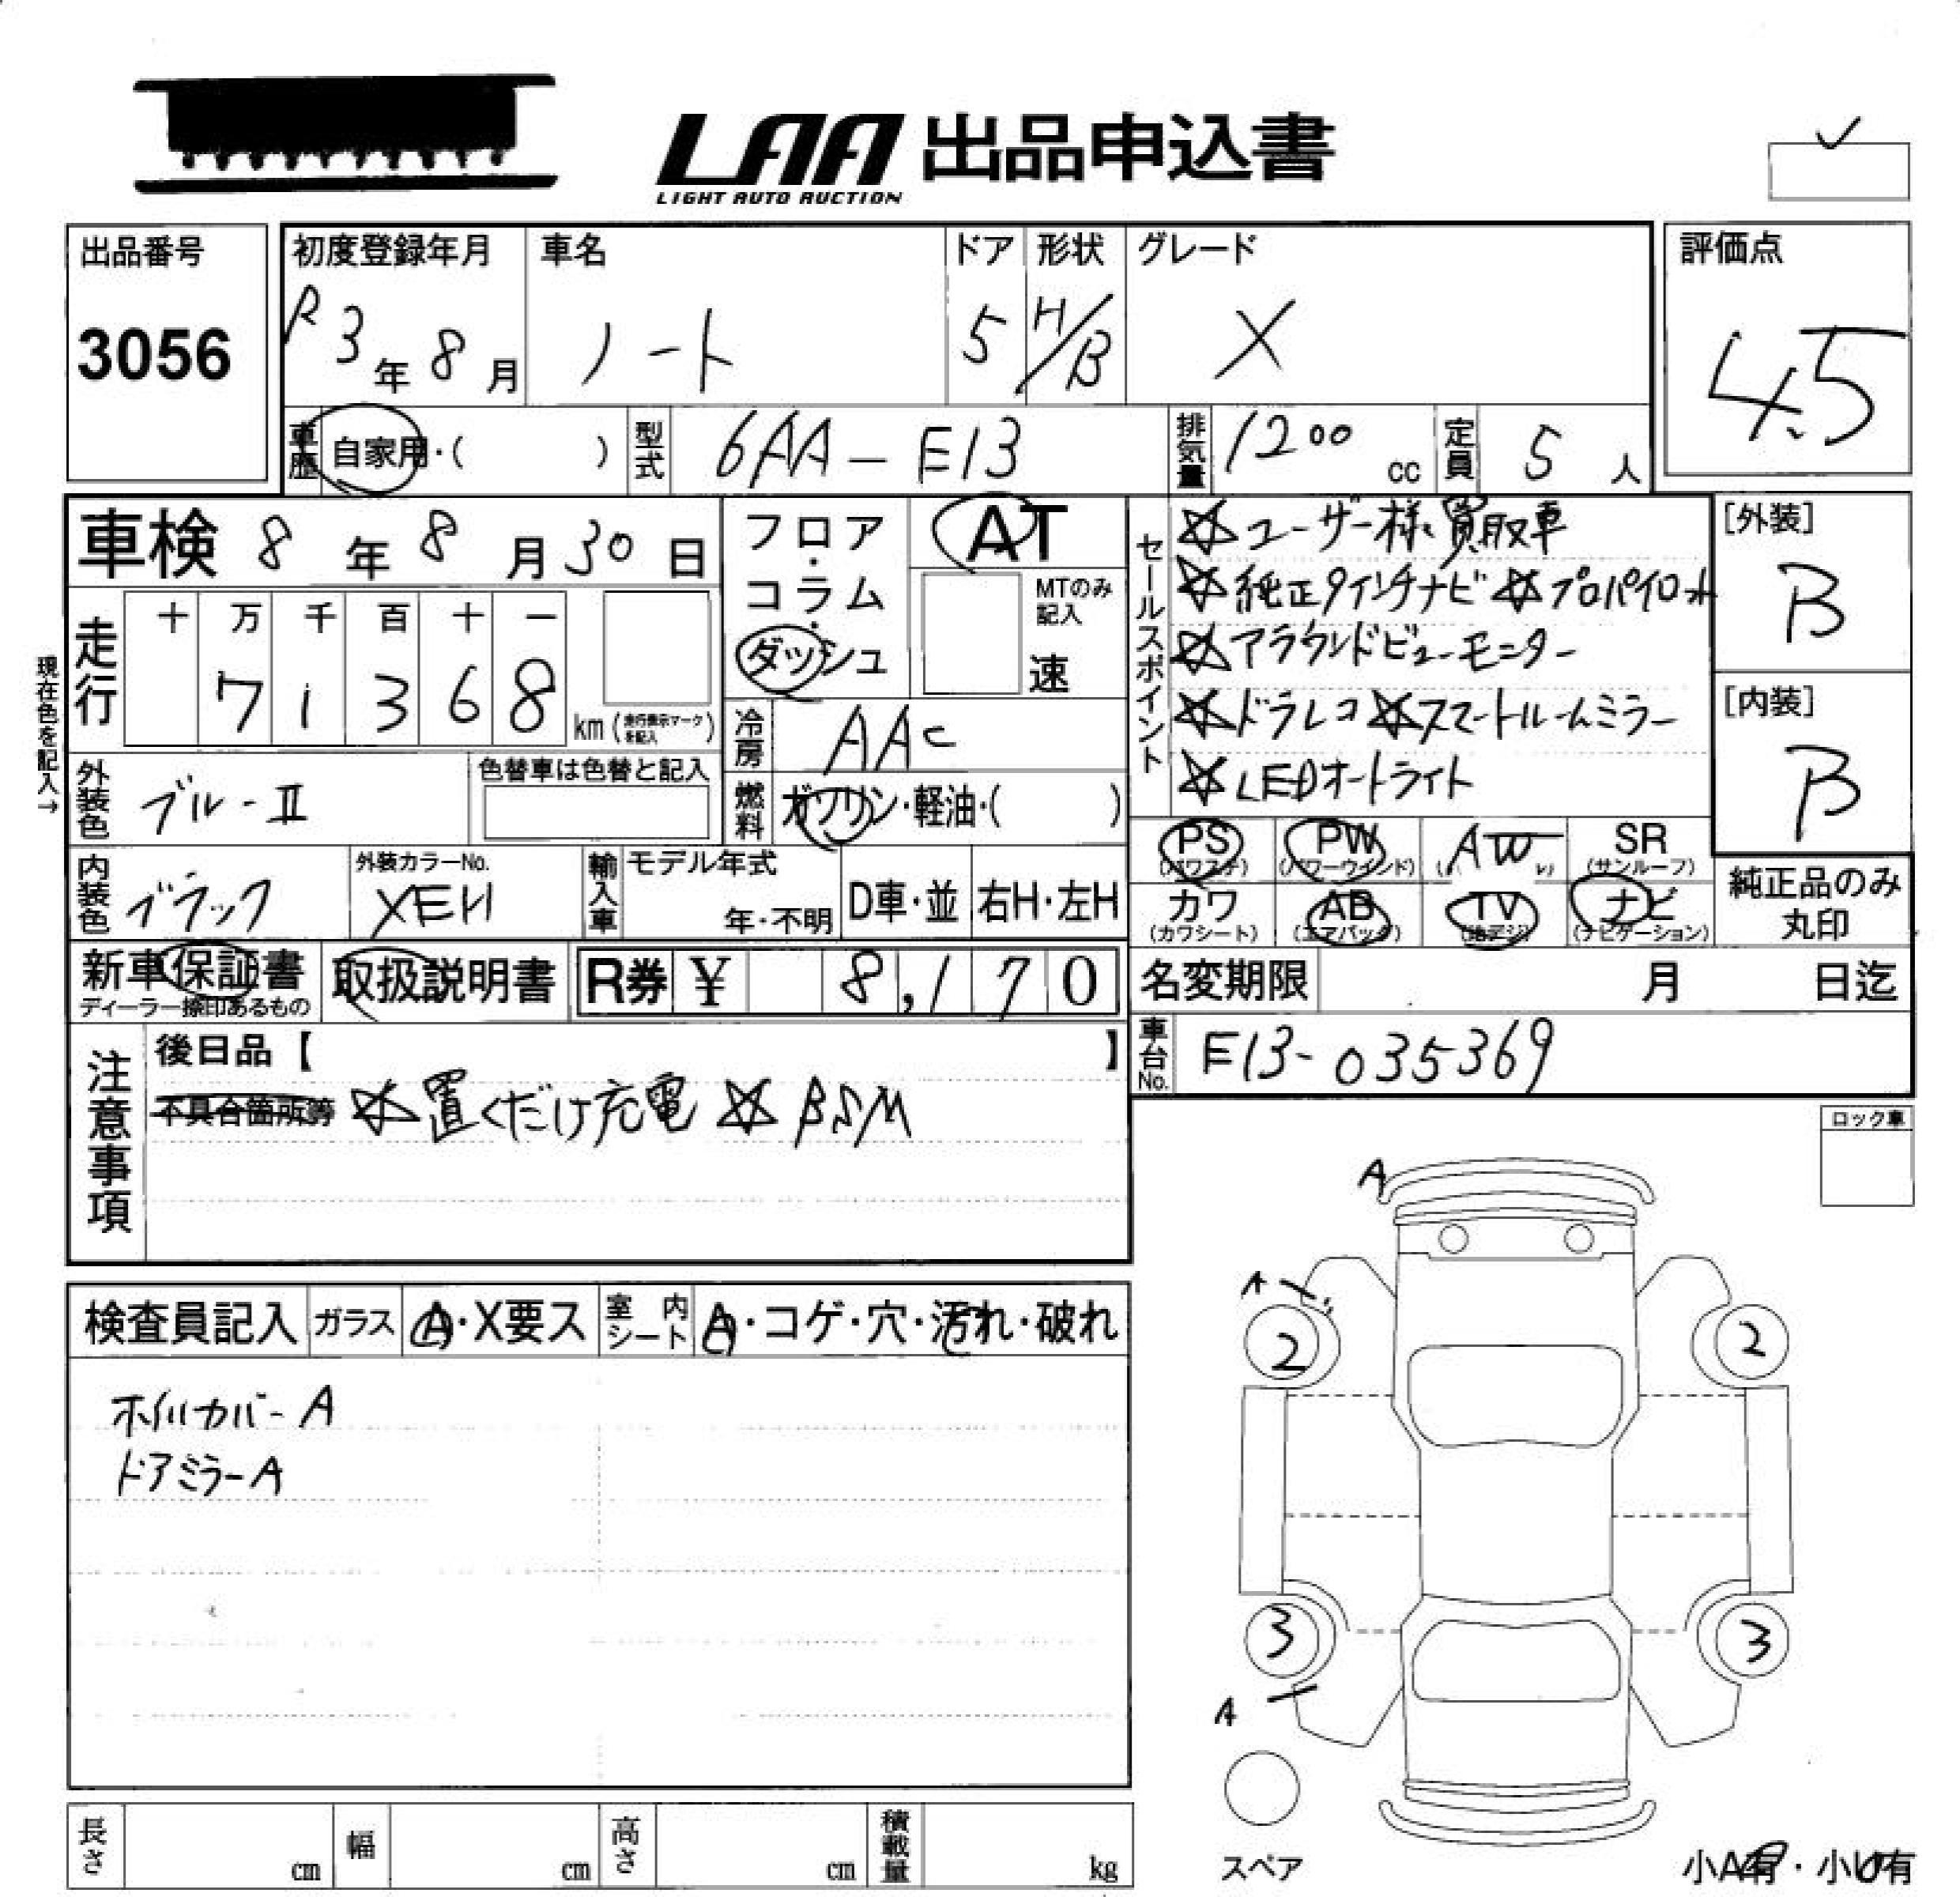 LAA 出品申込書
LIGHT AUTO AUCTION
出品番号
3056
初度登録年月
R3年8月
車名
ノート
ドア
5
形状
H/B
グレード
X
評価点
4.5
車歴 自家用・( )
型式 6AA-E13
排気量 1200 cc
定員 5 人
車検 8年8月30日
現在色を記入→
走行
十 万 千 百 十 一
7 1 3 6 8
km (走行表示マークを記入)
フロア・コラム・ダッシュ
AT
MTのみ記入
速
冷房 AAC
燃料 ガソリン・軽油・( )
外装色 ブルーII
色替車は色替と記入
内装色 ブラック
外装カラーNo.
XEH
輸入車 モデル年式
年・不明
D車・並
右H・左H
セールスポイント
☆ユーザー様買取車
☆純正9インチナビ☆プロパイロット
☆アラウンドビューモニター
☆ドラレコ☆スマートルームミラー
☆LEDオートライト
[外装]
B
[内装]
B
PS (パワステ)
PW (パワーウインド)
AW
SR (サンルーフ)
カワ (カワシート)
AB (エアバック)
TV (地デジ)
ナビ (ナビゲーション)
純正品のみ丸印
新車保証書
ディーラー捺印あるもの
取扱説明書
R券 ¥ 8,170
名変期限 月 日迄
車台No. E13-035369
注意事項
後日品【 】
不具合箇所等 ☆置くだけ充電☆BSM
ロック車
検査員記入
ガラス A・X要ス
室内シート A・コゲ・穴・汚れ・破れ
ホイルカバーA
ドアミラーA
A
A
2
2
3
3
A
スペア
小A有・小U有
長さ cm
幅 cm
高さ cm
積載量 kg